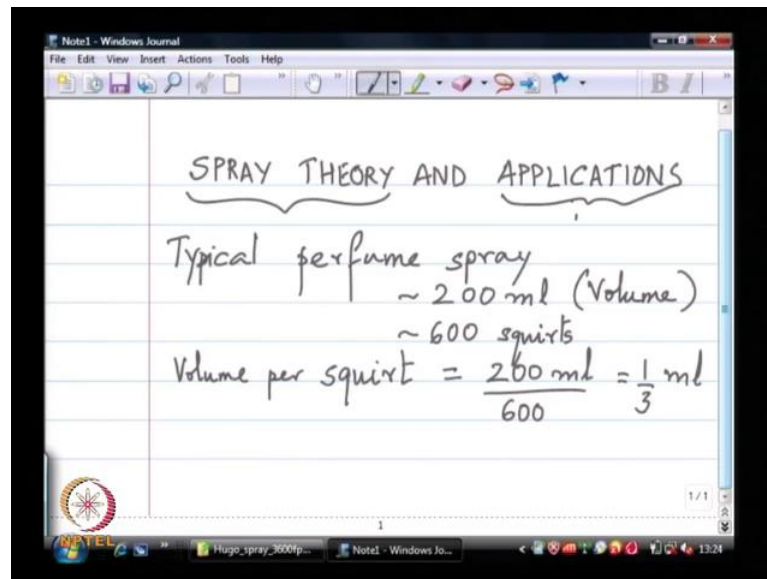 Note1 - Windows Journal
File Edit View Insert Actions Tools Help
B I
SPRAY THEORY AND APPLICATIONS
Typical perfume spray
~ 200 ml (Volume)
~ 600 squirts
Volume per squirt = 200 ml / 600 = 1/3 ml
1/1
1
NPTEL
Hugo_spray_3600fp... Note1 - Windows Jo... 13:24